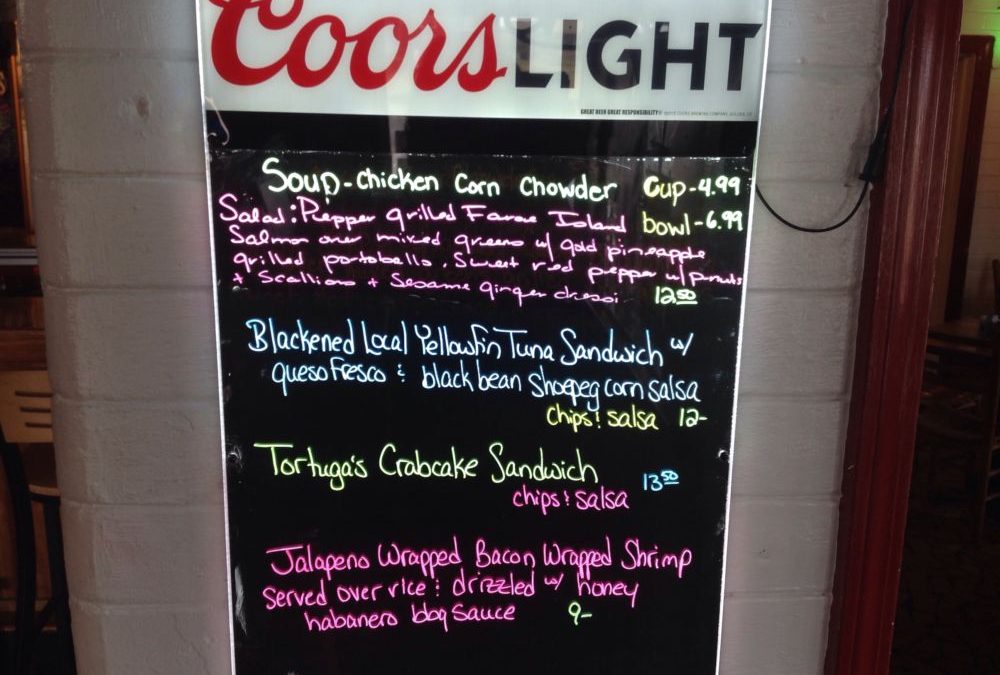 Coors LIGHT
GREAT BEER GREAT RESPONSIBILITY
Soup - Chicken Corn Chowder Cup - 4.99
Salad: Pepper grilled Faroe Island bowl - 6.99
Salmon over mixed greens w/ gold pineapple
grilled portabello, Sweet red pepper w/ pnuts
+ Scallions + Sesame ginger dressi 12.50
Blackened Local Yellowfin Tuna Sandwich w/
queso fresco & black bean shoepeg corn salsa
chips & salsa 12-
Tortuga's Crabcake Sandwich 13 50
chips & salsa
Jalapeno Wrapped Bacon Wrapped Shrimp
served over rice & drizzled w/ honey
habanero bbq sauce 9-